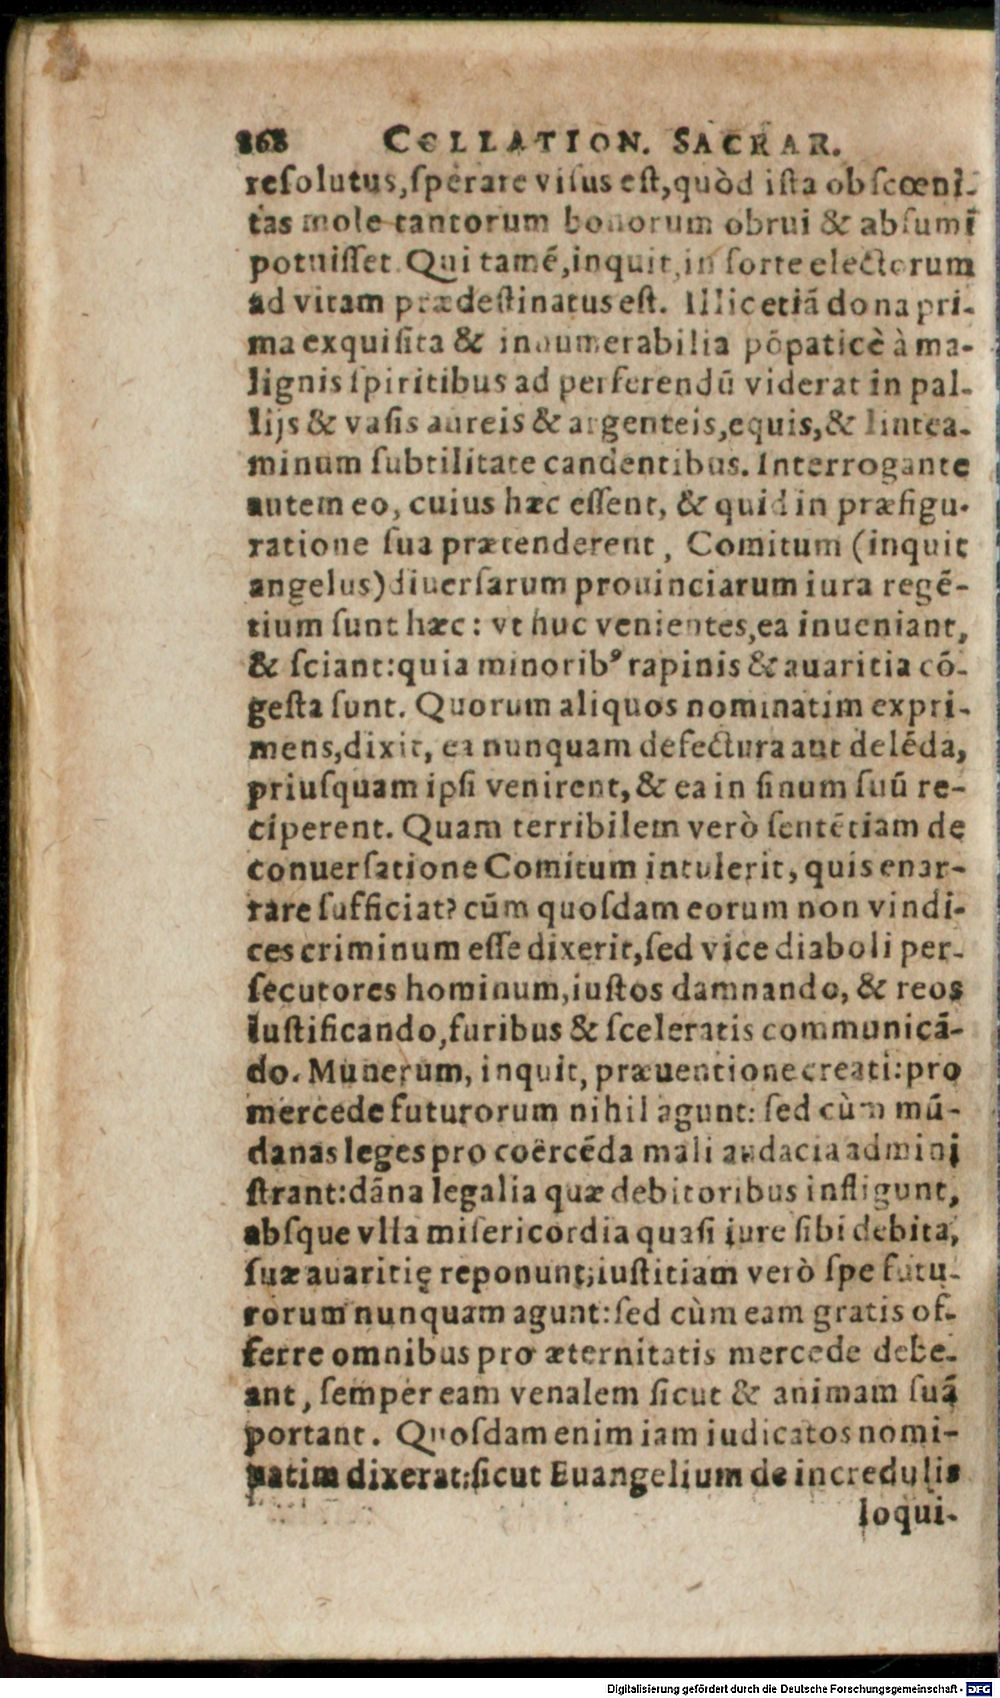 268 COLLATION. SACRAR.
reſolutus, ſperare viſus eſt, quòd iſta obſcœni-
tas mole tantorum bonorum obrui & abſumi
potuiſſet. Qui tamē, inquit, in ſorte electorum
ad vitam prædeſtinatus eſt. Illic etiā dona pri-
ma exquiſita & innumerabilia pōpaticè à ma-
lignis ſpiritibus ad perferendū viderat in pal-
lijs & vaſis aureis & argenteis, equis, & lintea-
minum ſubtilitate candentibus. Interrogante
autem eo, cuius hæc eſſent, & quid in præfigu-
ratione ſua prætenderent, Comitum (inquit
angelus) diuerſarum prouinciarum iura regē-
tium ſunt hæc: vt huc venientes, ea inueniant,
& ſciant: quia minoribꝰ rapinis & auaritia cō-
geſta ſunt. Quorum aliquos nominatim expri-
mens, dixit, ea nunquam defectura aut delēda,
priuſquam ipſi venirent, & ea in ſinum ſuū re-
ciperent. Quam terribilem verò ſentētiam de
conuerſatione Comitum intulerit, quis enar-
rare ſufficiat? cūm quoſdam eorum non vindi-
ces criminum eſſe dixerit, ſed vice diaboli per-
ſecutores hominum, iuſtos damnando, & reos
iuſtificando, furibus & ſceleratis communicā-
do. Munerum, inquit, præuentione creati: pro
mercede futurorum nihil agunt: ſed cùm mū-
danas leges pro coërcēda mali audacia admini
ſtrant: dāna legalia quæ debitoribus infligunt,
abſque vlla miſericordia quaſi iure ſibi debita,
ſuæ auaritię reponunt; iuſtitiam verò ſpe futu-
rorum nunquam agunt: ſed cùm eam gratis of-
ferre omnibus pro æternitatis mercede debe-
ant, ſemper eam venalem ſicut & animam ſuā
portant. Quoſdam enim iam iudicatos nomi-
natim dixerat: ſicut Euangelium de incredulis
loqui-
Digitalisierung gefördert durch die Deutsche Forschungsgemeinschaft - DFG